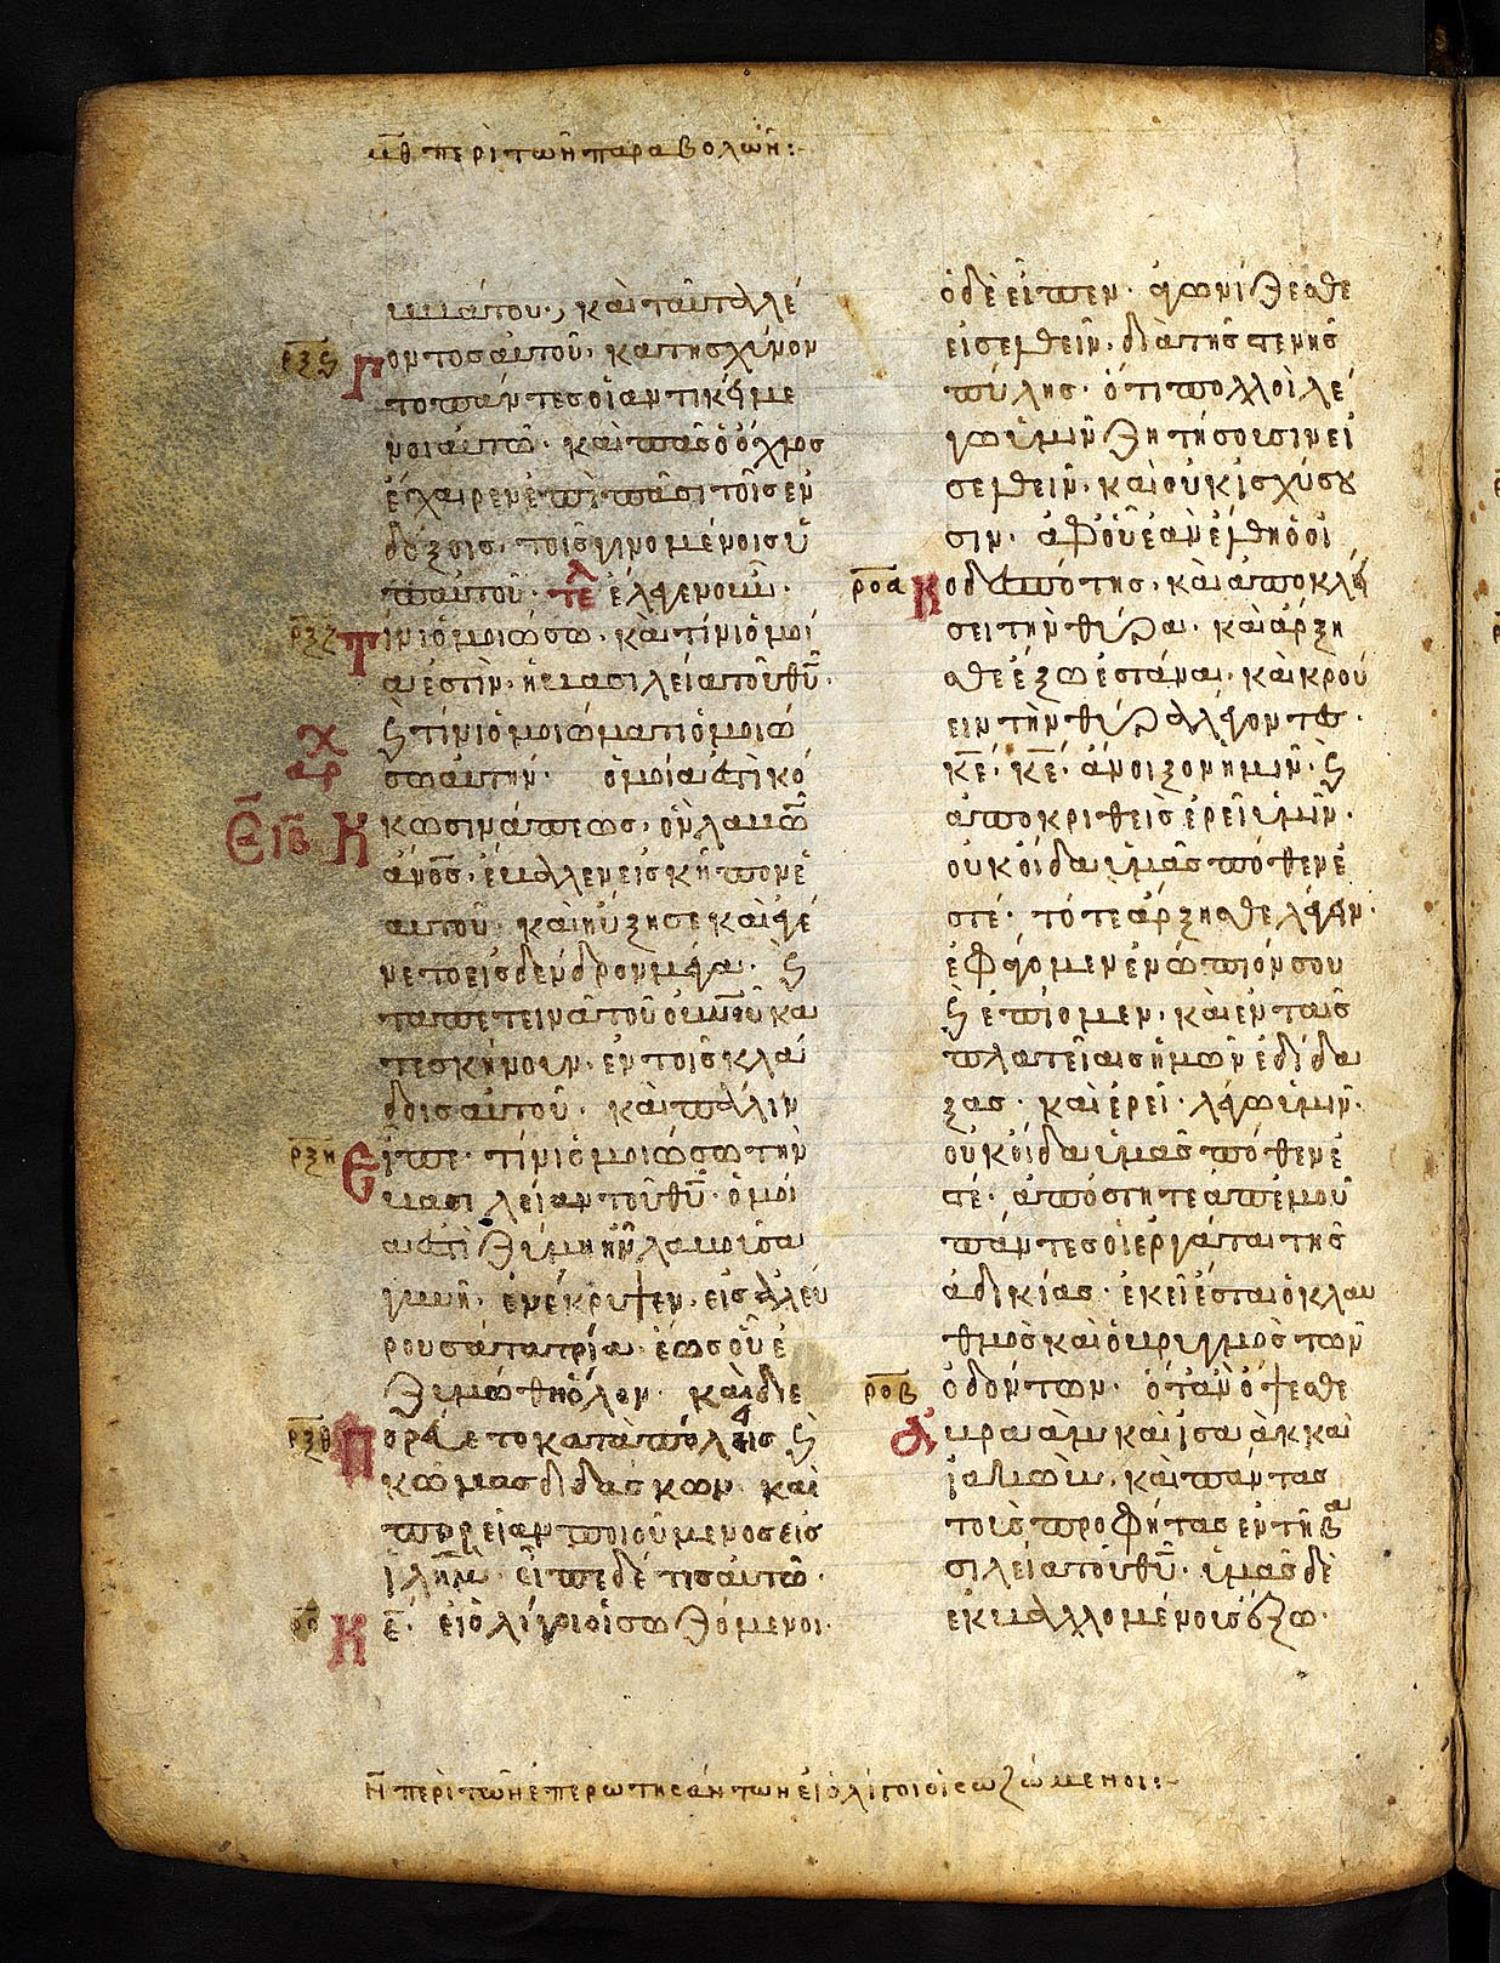 μθ περὶ τῶν παραβολῶν:
ββάτου·, καὶ ταῦτα λέ
ρξϛ Γοντος αὐτοῦ· κατησχύνον
το πάντες οἱ ἀντικείμε
νοι αὐτῶ· καὶ πᾶς ὁ ὄχλος
ἔχαιρεν ἐπὶ πᾶσι τοῖς ἐν
δόξοις· τοῖς γινομένοις ὑ
π' αὐτοῦ· τελ ἔλεγεν οὖν·
ρξζ Τίνι ὁμοιώσω· καὶ τίνι ὁμοί
α ἐστὶν· ἡ βασιλεία τοῦ θυ·
ϛ τίνι ὁμοιώματι ὁμοιώ
σω αὐτήν· ὁμοία ἐστὶ κό
Κκω σινάπεως· ὃν λαβὼν
ἀνος· ἔβαλλεν εἰς κῆπον ἑ
αυτοῦ· καὶ ηὔξησε καὶ ἐγέ
νετο εἰς δένδρον μέγα· ϛ
τὰ πετεινὰ τοῦ οὐνοῦ κα
τεσκήνουν· ἐν τοῖς κλά
δοις αὐτοῦ· καὶ πάλιν
ρξη Εἶπε· τίνι ὁμοιώσω τὴν
βασιλείαν τοῦ θυ· ὁμοί
α ἐστὶ ζύμη ἣν λαβοῦσα
γυνὴ· ἐνέκρυψεν· εἰς ἀλεύ
ρου σάτα τρία· ἕως οὗ ἐ
ζυμώθη ὅλον· καὶ διε
ρξθ Πορεύετο κατὰ πόλεις ϛ
κώμας διδάσκων· καὶ
πορείαν ποιούμενος εἰς
ἱλῆμ· εἶπε δέ τις αὐτῶ·
ρο Κε· εἰ ὀλίγοι οἱ σωζόμενοι·
ὁ δὲ εἶπεν· ἀγωνίζεσθε
εἰσελθεῖν· διὰ τῆς στενῆς
πύλης· ὅτι πολλοὶ λέ
γω ὑμῖν ζητήσουσιν εἰ
σελθεῖν· καὶ οὐκ ἰσχύσου
σιν· ἀφ' οὗ ἐὰν ἔλθη ὁ οἰ
ροα Κοδεσπότης· καὶ ἀποκλεί
σει τὴν θύραν· καὶ ἄρξη
σθε ἔξω ἑστάναι· καὶ κρού
ειν τὴν θύραν λέγοντες·
κε· κε· ἄνοιξον ἡμῖν· ϛ
ἀποκριθεὶς ἐρεῖ ὑμῖν·
οὐκ οἶδα ὑμᾶς πόθεν ἐ
στέ· τότε ἄρξησθε λέγειν·
ἐφάγομεν ἐνώπιόν σου
ϛ ἐπίομεν· καὶ ἐν ταῖς
πλατείαις ἡμῶν ἐδίδα
ξας· καὶ ἐρεῖ· λέγω ὑμῖν·
οὐκ οἶδα ὑμᾶς πόθεν ἐ
στέ· ἀπόστητε ἀπ' ἐμοῦ
πάντες οἱ ἐργάται τῆς
ἀδικίας· ἐκεῖ ἔσται ὁ κλαυ
θμὸς καὶ ὁ βρυγμὸς τῶν
ροβ ὀδόντων· ὅταν ὄψεσθε
Ἀβραὰμ καὶ ἰσαὰκ καὶ
ἰακὼβ· καὶ πάντας
τοὺς προφήτας ἐν τῆ βα
σιλεία τοῦ θυ· ὑμᾶς δὲ
ἐκβαλλομένους ἔξω·
ν περὶ τῶν ἐπερωτησάντων εἰ ὀλίγοι οἱ σωζώμενοι: